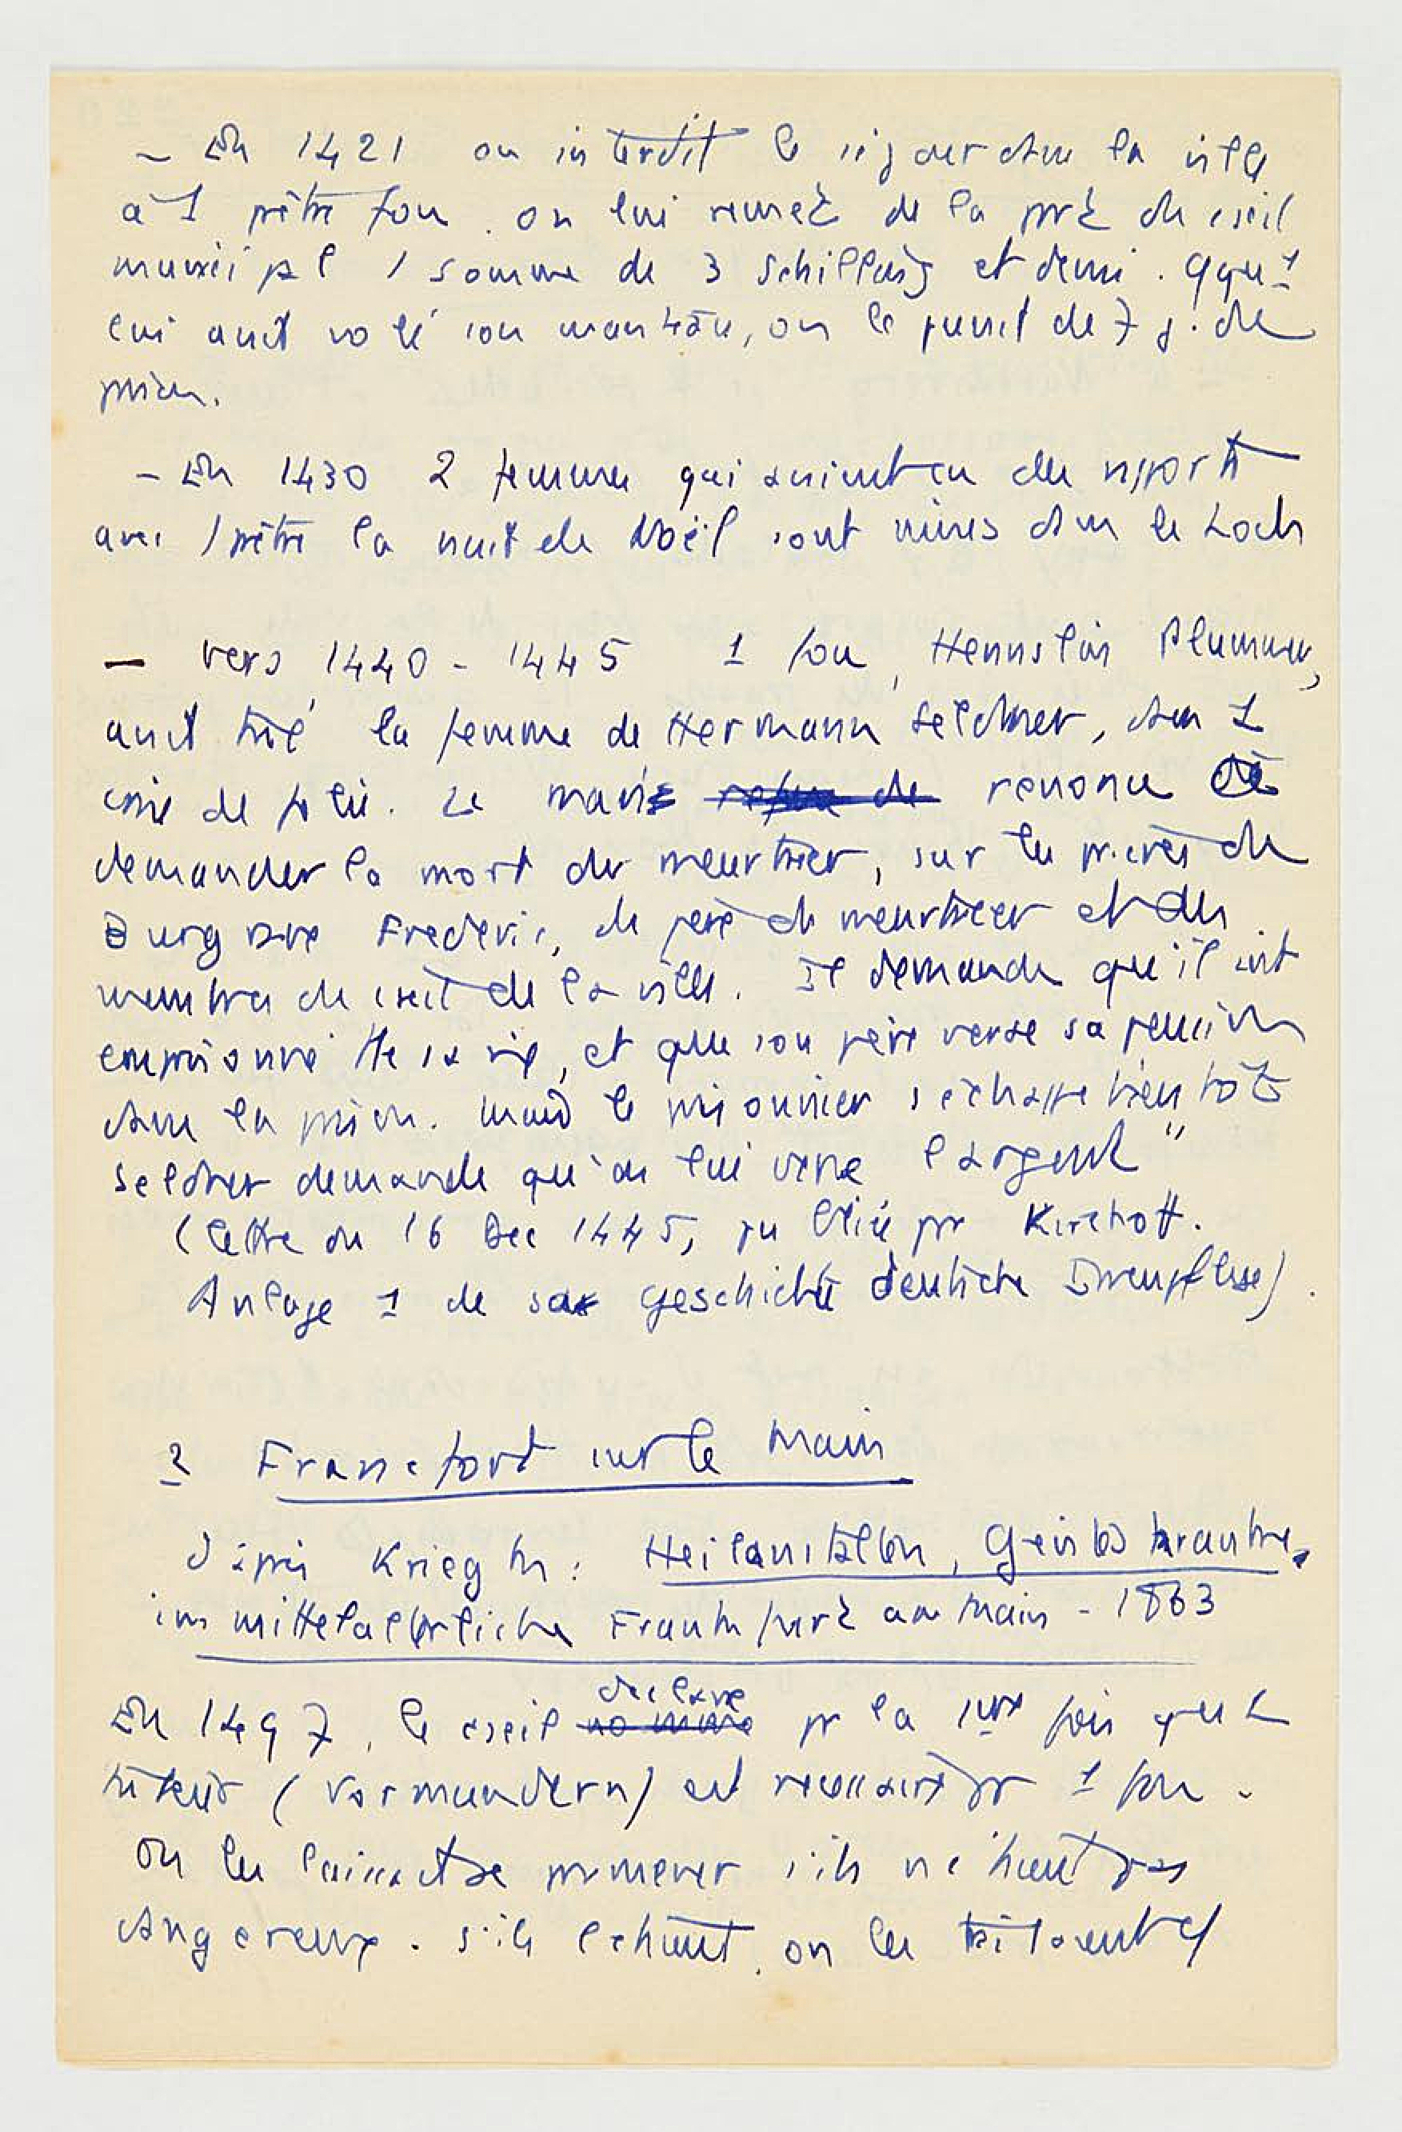 – En 1421 on interdit le séjour dans la ville
à 1 prêtre fou. on lui remet de la part du cseil
municipal 1 somme de 3 schillings et demi. Qqu'1
lui avait volé son manteau, on le punit de 7 j. de
prison.
– En 1430 2 femmes qui avaient eu des rapports
avec 1 prêtre la nuit de Noël sont mises dans le Loch
– vers 1440 - 1445 1 fou, Hennslin
avait tué la femme de Hermann Seldner, dans 1
crise de folie. Le mari refuse de renonce à
demander la mort du meurtrier, sur les prières du
Burgrave Frederic, du père du meurtrier et des
membres du cseil de la ville. Il demande qu'il soit
emprisonné tte sa vie, et que son père verse sa pension
dans la prison. Mais le prisonnier s'échappe bientôt
Seldner demande qu'on lui verse l'argent"
(lettre du 16 Dec 1445, publiée par Kirchoff.
Anlage 1 de sa Geschichte deutsche Irrenpflege).
2 Francfort sur le Main
D'après Kriegk : Heilanstalten, Geisteskranke,
im mittelalterliche Frankfurt am Main - 1863
déclare
En 1497, le cseil nomme pr la 1ère fois que
tuteur (Vormundern) est nécessaire pr 1 fou.
On les laissait se promener s'ils n'étaient pas
dangereux. S'ils l'étaient, on les